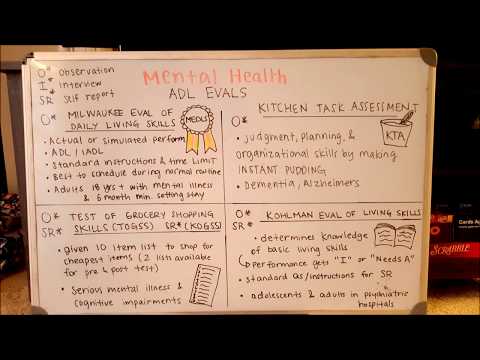 O* observation
I* interview
SR* self report
Mental Health
ADL EVALS
O* MILWAUKEE EVAL OF
DAILY LIVING SKILLS
MEDLS
• Actual or simulated perform
• ADL / IADL
• Standard instructions & time LIMIT
• Best to schedule during normal routine
• Adults 18 yrs + with mental illness
& 6 month min. setting stay
O* KITCHEN TASK ASSESSMENT
KTA
• judgment, planning, &
organizational skills by making
INSTANT PUDDING
• Dementia, Alzheimers
O* TEST OF GROCERY SHOPPING
SR* SKILLS (TOGSS) SR* (KOGSS)
• given 10 item list to shop for
cheapest items (2 lists available
for pre & post test)
• Serious mental illness &
cognitive impairments
O* KOHLMAN EVAL OF LIVING SKILLS
SR*
• determines knowledge of
basic living skills
performance gets "I" or "Needs A"
• standard Qs/instructions for SR
• adolescents & adults in psychiatric
hospitals
SCRABBLE